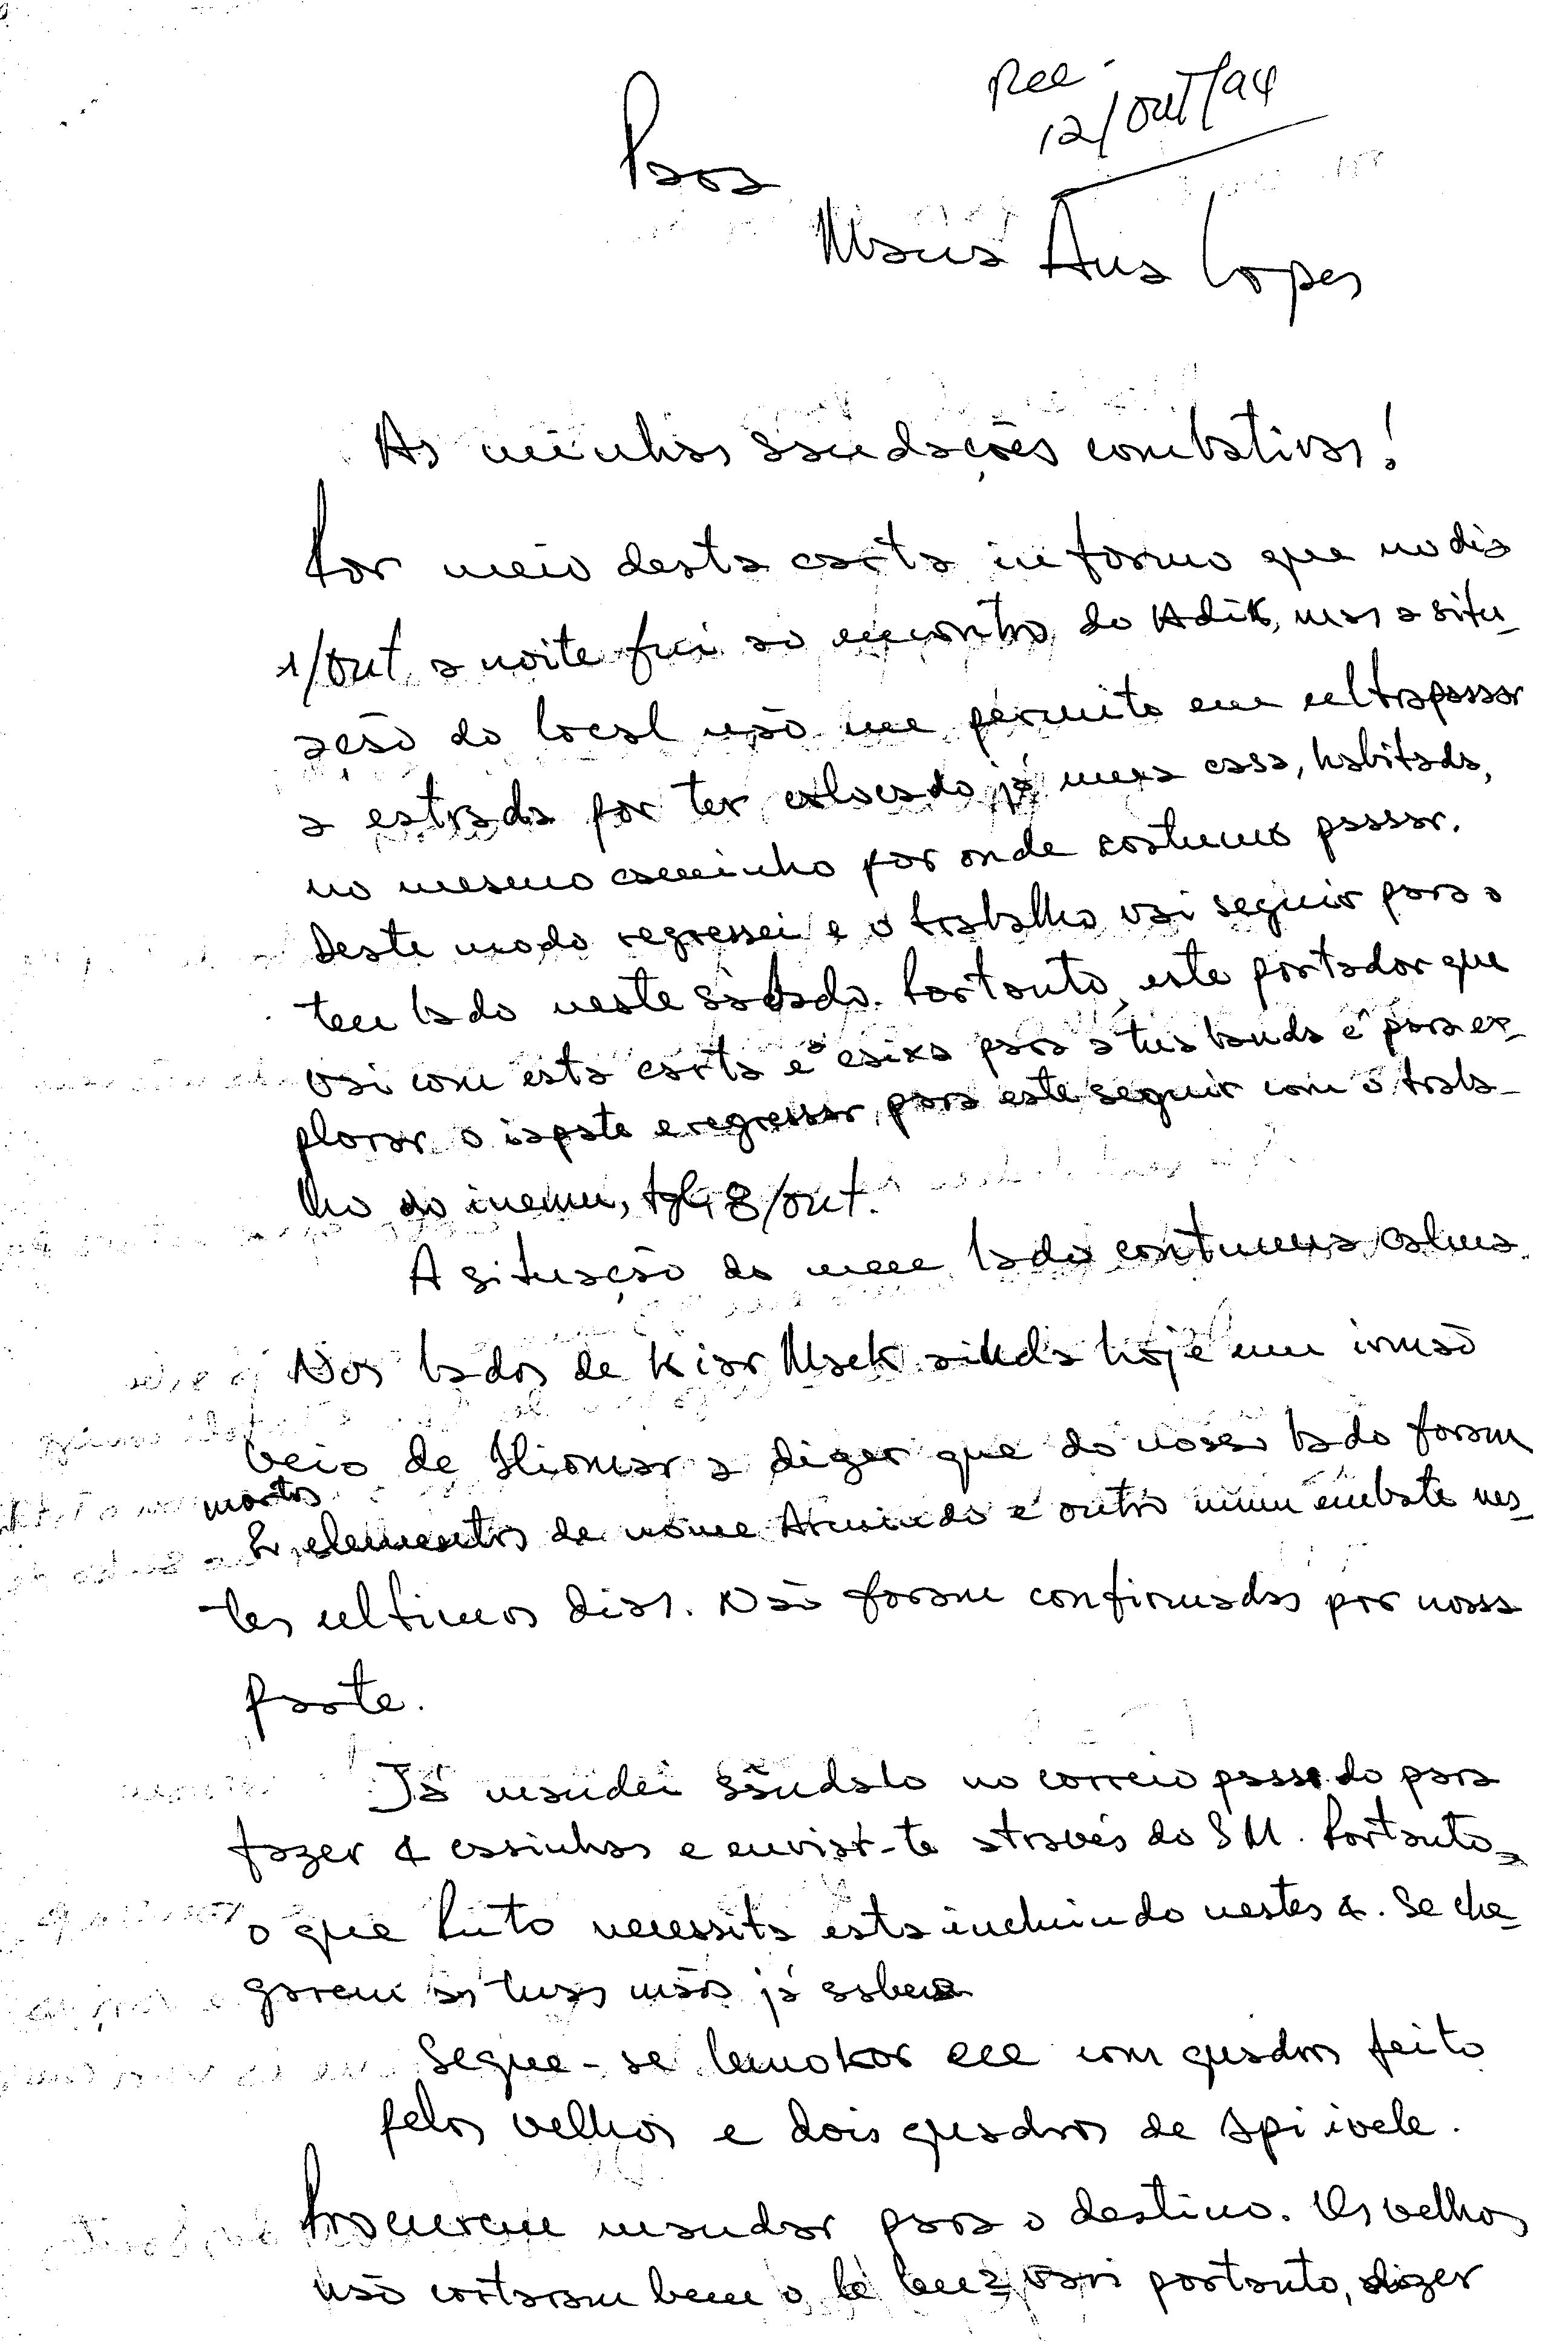 Rec.
12/out/94
Para
Maria Ana Lopes
As minhas saudações combativas!
Por meio desta carta informo que no dia
1/out a noite fui ao encontro do Adik, mas a situ-
ação do local não me permite em ultrapassar
a estrada por ter colocado já uma casa, habitada,
no mesmo caminho por onde costumo passar.
Deste modo regressei e o trabalho vai seguir para o
teu lado neste sábado. Portanto, este portador que
vai com esta carta e a caixa para a tua banda é para ex-
plorar o iapate e regressar, para este seguir com o traba-
lho do inemu, 8/out.
A situação do meu lado continua calma.
Nos lados de Kiar Mack ainda hoje um irmão
veio de Hiomar a dizer que do nosso lado foram
mortos
2 elementos de nome Armindo e outro num embate nes-
tes ultimos dias. Não foram confirmadas por nossa
parte.
Já mandei sândalo no correio passado para
fazer 4 casinhas e enviar-te através do SM. Portanto,
o que Luto necessita esta incluindo nestes 4. Se che-
garem as tuas mãos já sabes
Segue-se lemokor com quadros feito
pelos velhos e dois quadros de Api ivele.
Procurem mandar para o destino. Os velhos
não cortaram bem o portanto, dizer